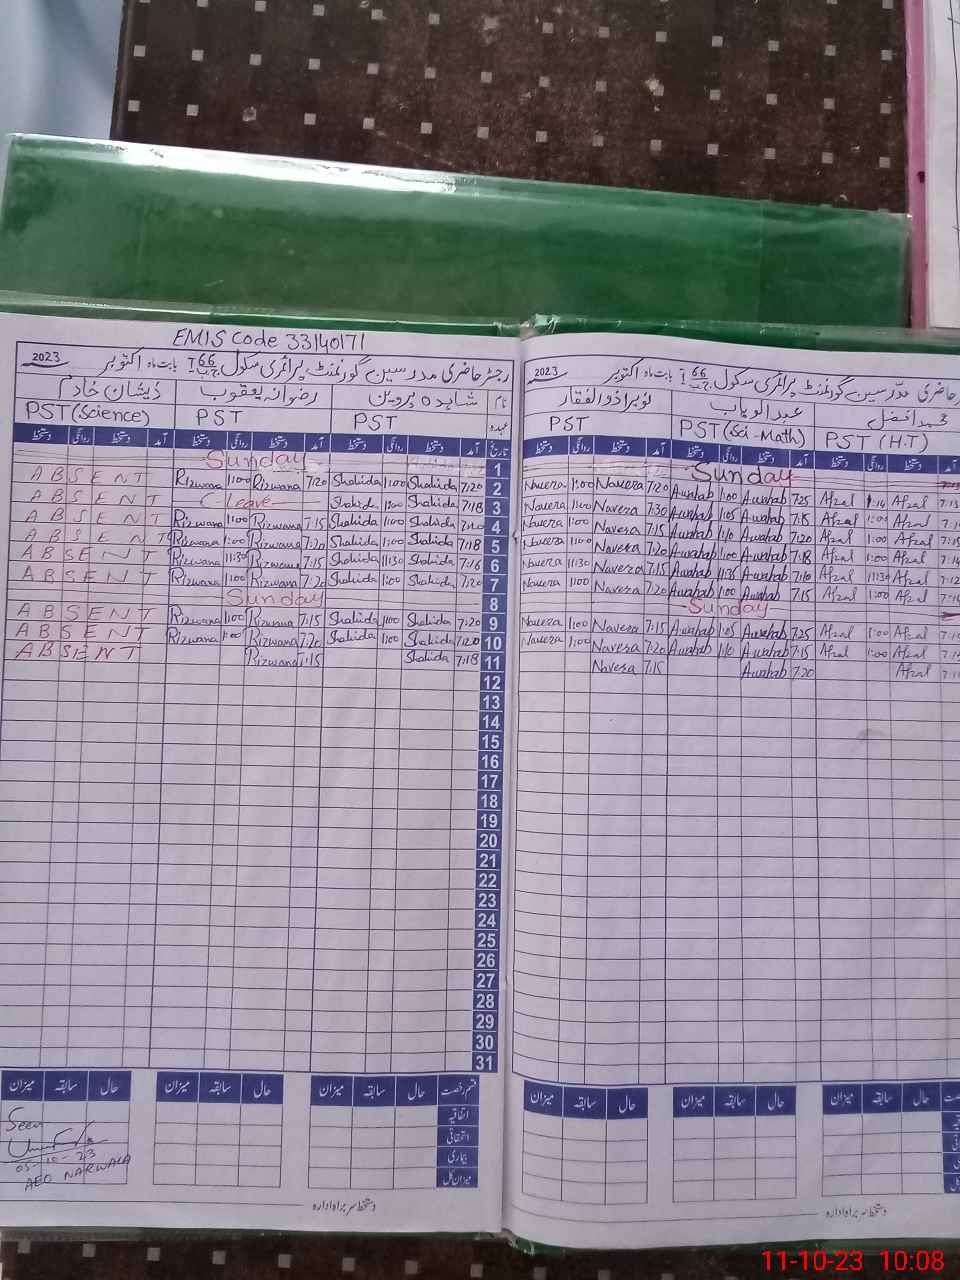 EMIS Code 33140171
2023 رجسٹر حاضری مدرسین گورنمنٹ پرائمری سکول 66 ج ب T بابت ماہ اکتوبر
نام شاہدہ پروین رضوانہ یعقوب ذیشان خادم
عہدہ PST PST PST (Science)
تاریخ آمد دستخط روانگی دستخط آمد دستخط روانگی دستخط آمد دستخط روانگی دستخط
1 Sunday
ABSENT Rizwana 1:00 Rizwana 7:20 Shahida 1:00 Shahida 7:20 2
ABSENT C-Leave Shahida 1:00 Shahida 7:18 3
ABSENT Rizwana 1:00 Rizwana 7:15 Shahida 1:00 Shahida 4
ABSENT Rizwana 1:00 Rizwana 7:20 Shahida 1:00 Shahida 7:18 5
ABSENT Rizwana 11:30 Rizwana 7:15 Shahida 11:30 Shahida 7:18 6
ABSENT Rizwana 1:00 Rizwana 7:20 Shahida 1:00 Shahida 7:20 7
Sunday 8
ABSENT Rizwana 1:00 Rizwana 7:15 Shahida 1:00 Shahida 7:20 9
ABSENT Rizwana 1:00 Rizwana 7:20 Shahida 1:00 Shahida 10
ABSENT Rizwana 7:15 Shahida 7:18 11
12
13
14
15
16
17
18
19
20
21
22
23
24
25
26
27
28
29
30
31
قسم رخصت حال سابقہ میزان حال سابقہ میزان حال سابقہ میزان
اتفاقیہ
استحقاقی
بیماری
میزان کل
Seen
05-10-23
AEO NARWALA
دستخط سربراہ ادارہ
2023 حاضری مدرسین گورنمنٹ پرائمری سکول 66 ج ب بابت ماہ اکتوبر
محمد افضل عبدالوہاب نویرا ذوالفقار
PST PST (Sci-Math) PST (H.T)
آمد دستخط روانگی دستخط آمد دستخط روانگی دستخط آمد دستخط روانگی دستخط
Sunday
Navera 1:00 Navera 7:20 Awahab 1:00 Awahab 7:25 Afzal 1:14 Afzal
Navera 1:00 Navera 7:30 Awahab 1:05 Awahab 7:15 Afzal 1:00 Afzal
Navera 1:00 Navera 7:15 Awahab 1:10 Awahab 7:20 Afzal 1:00 Afzal
Navera 1:00 Navera 7:20 Awahab 1:00 Awahab 7:18 Afzal 1:00 Afzal
Navera 11:30 Navera 7:15 Awahab 11:35 Awahab 7:10 Afzal 11:30 Afzal
Navera 1:00 Navera 7:20 Awahab 1:00 Awahab 7:15 Afzal 1:00 Afzal
Sunday
Navera 1:00 Navera 7:15 Awahab 1:05 Awahab 7:25 Afzal 1:00 Afzal
Navera 1:00 Navera 7:20 Awahab 1:10 Awahab 7:15 Afzal 1:00 Afzal
Navera 7:15 Awahab 7:20 Afzal
حال سابقہ میزان حال سابقہ میزان حال سابقہ میزان
دستخط سربراہ ادارہ
11-10-23 10:08